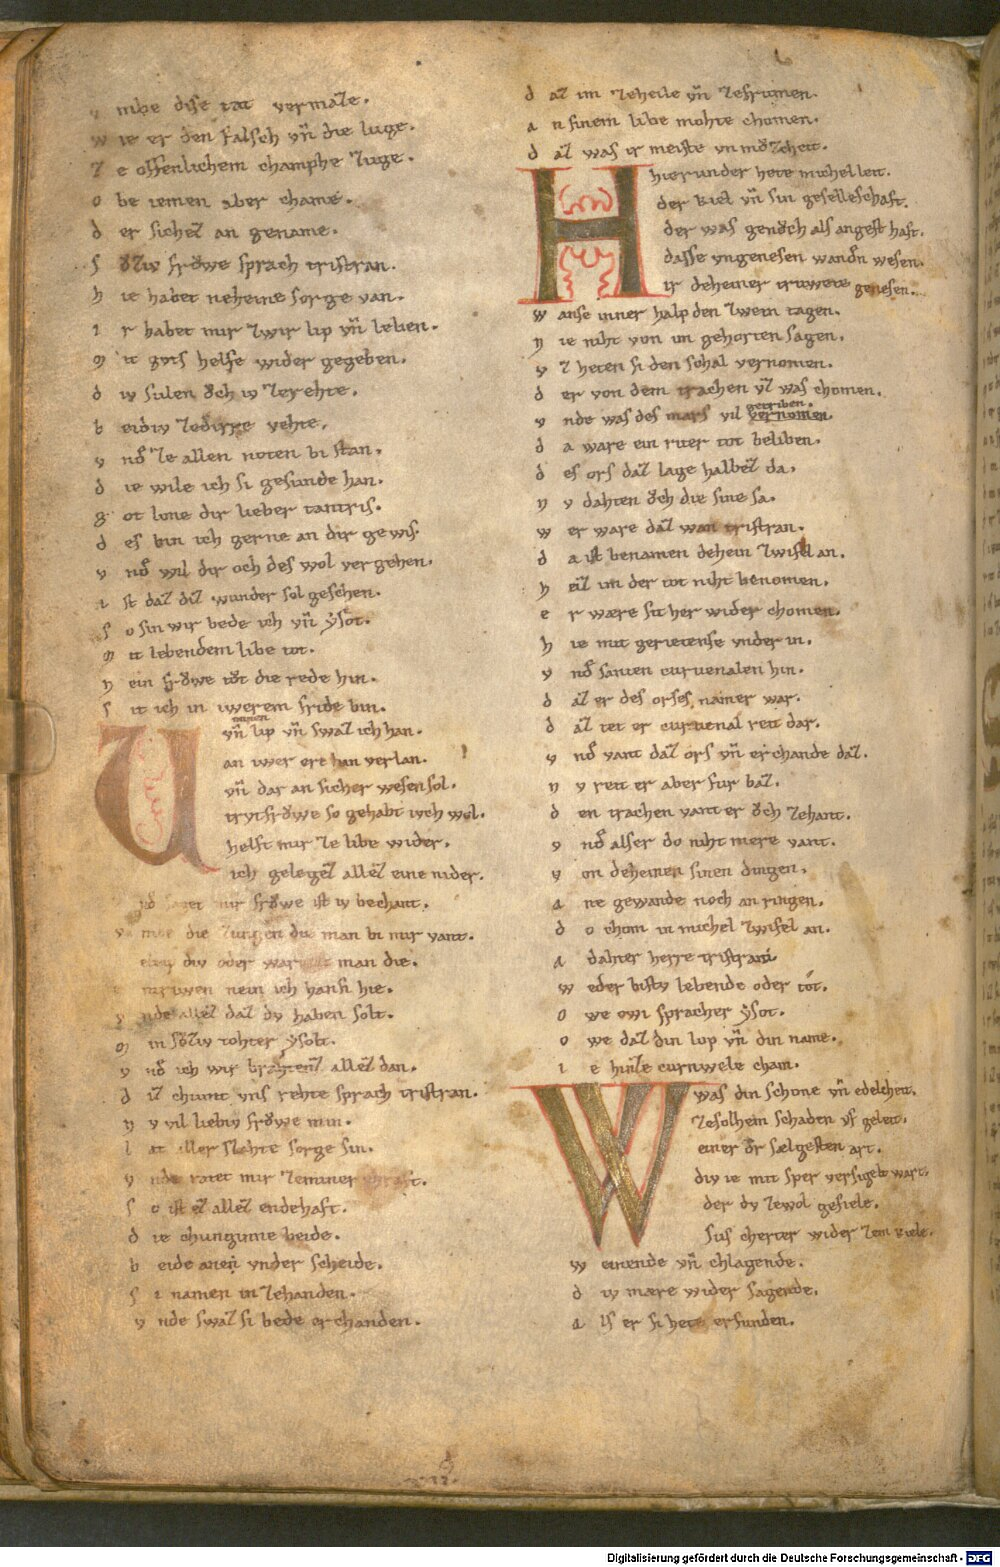 v mbe dise tat vermaͤze.
w ie er den falsch vn̄ die luge.
z e offenlichem champhe zuge.
o be iemen aber chame.
d er sichez an gename.
s ǒziv frǒwe sprach tristran.
h ie habet neheine sorge van.
i r habet mir zwir lip vn̄ leben.
m it gvts helfe wider gegeben.
d iv sulen ǒch iv ze rehte.
b eidiv zedirre vehte.
v nð ze allen noten bi stan.
d ie wile ich si gesunde han.
g ot lone dir lieber tantris.
d es bin ich gerne an dir gewis.
v nð wil dir och des wol vergehen.
i st daz diz wunder sol geschen.
s o sin wir bede ich vn̄ ẏsot.
m it lebendem libe tot.
n ein frǒwe tǒt die rede hin.
s it ich in iwerem fride bin.
U vn̄ lip vn̄ swaz ich han.
an iwer ere han verlan.
vn̄ dar an sicher wesen sol.
trvtfrǒwe so gehabt iwch wol.
helft mir ze libe wider.
ich gelegez allez eine nider.
nð saget mir frǒwe ist iv bechant.
v mbe die zungen die man bi mir vant.
man die.
nein ich han si hie.
v nde allez daz dv haben solt.
m in schǒziv tohter ẏsolt.
v nð ich wir brahtenz allez dan.
d iz chumt vns rehte sprach tristran.
n v vil liebiv frǒwe min.
l at aller slahte sorge sin.
v nde ratet mir ze miner chraft.
s o ist ez allez endehaft.
d ie chunginne beide.
b eide anen vnder scheide.
s i namen in zehanden.
v nde swaz si bede erchanden.
d az im zeheile vn̄ zefrumen.
a n sinem libe mohte chomen.
d az was ir meiste vnmǒzcheit.
H hier under hete michel leit.
der kiel vn̄ sin geselleschaft.
der was genǒch als angest haft.
dasse vngenesen wandn wesen.
ir deheiner truwete genesen.
w anse inner halp den zwein tagen.
n ie niht von im gehorten sagen.
v z heten si den schal vernomen.
d er von dem trachen vz was chomen.
v nde was des mars vil vernomen. getriben.
d a ware ein riter tot beliben.
d es ors daz lage halbez da.
n v dahten ǒch die sine sa.
w er ware daz wan tristran.
d a ist benamen dehein zwifel an.
h eiz im der tot niht benomen.
e r wære sit her wider chomen.
h ie mit gerietense vnder in.
v nð santen curvenalen hin.
d az er des orses næmer war.
d az tet er curvenal reit dar.
v nð vant daz ors vn̄ erchande daz.
n v reit er aber fur baz.
d en trachen vant er ǒch zehant.
v nð alser do niht mere vant.
v on deheinen sinen dingen.
a ne gewande noch an ringen.
d o chom in michel zwifel an.
a dahter herre tristran.
w eder bistv lebende oder tót.
o we owi spracher ẏsot.
o we daz din lop vn̄ din name.
i e hinze curnwele cham.
W was din schone vn̄ edelcheit.
zesolhem schaden vf geleit.
einer ðr sælgesten art.
div ie mit sper versigelt wart.
der dv ze wol gefiele.
sus cherter wider zem kiele.
w einende vn̄ chlagende.
d iv mære wider sagende.
a ls er si hete erfunden.
Digitalisierung gefördert durch die Deutsche Forschungsgemeinschaft - DFG